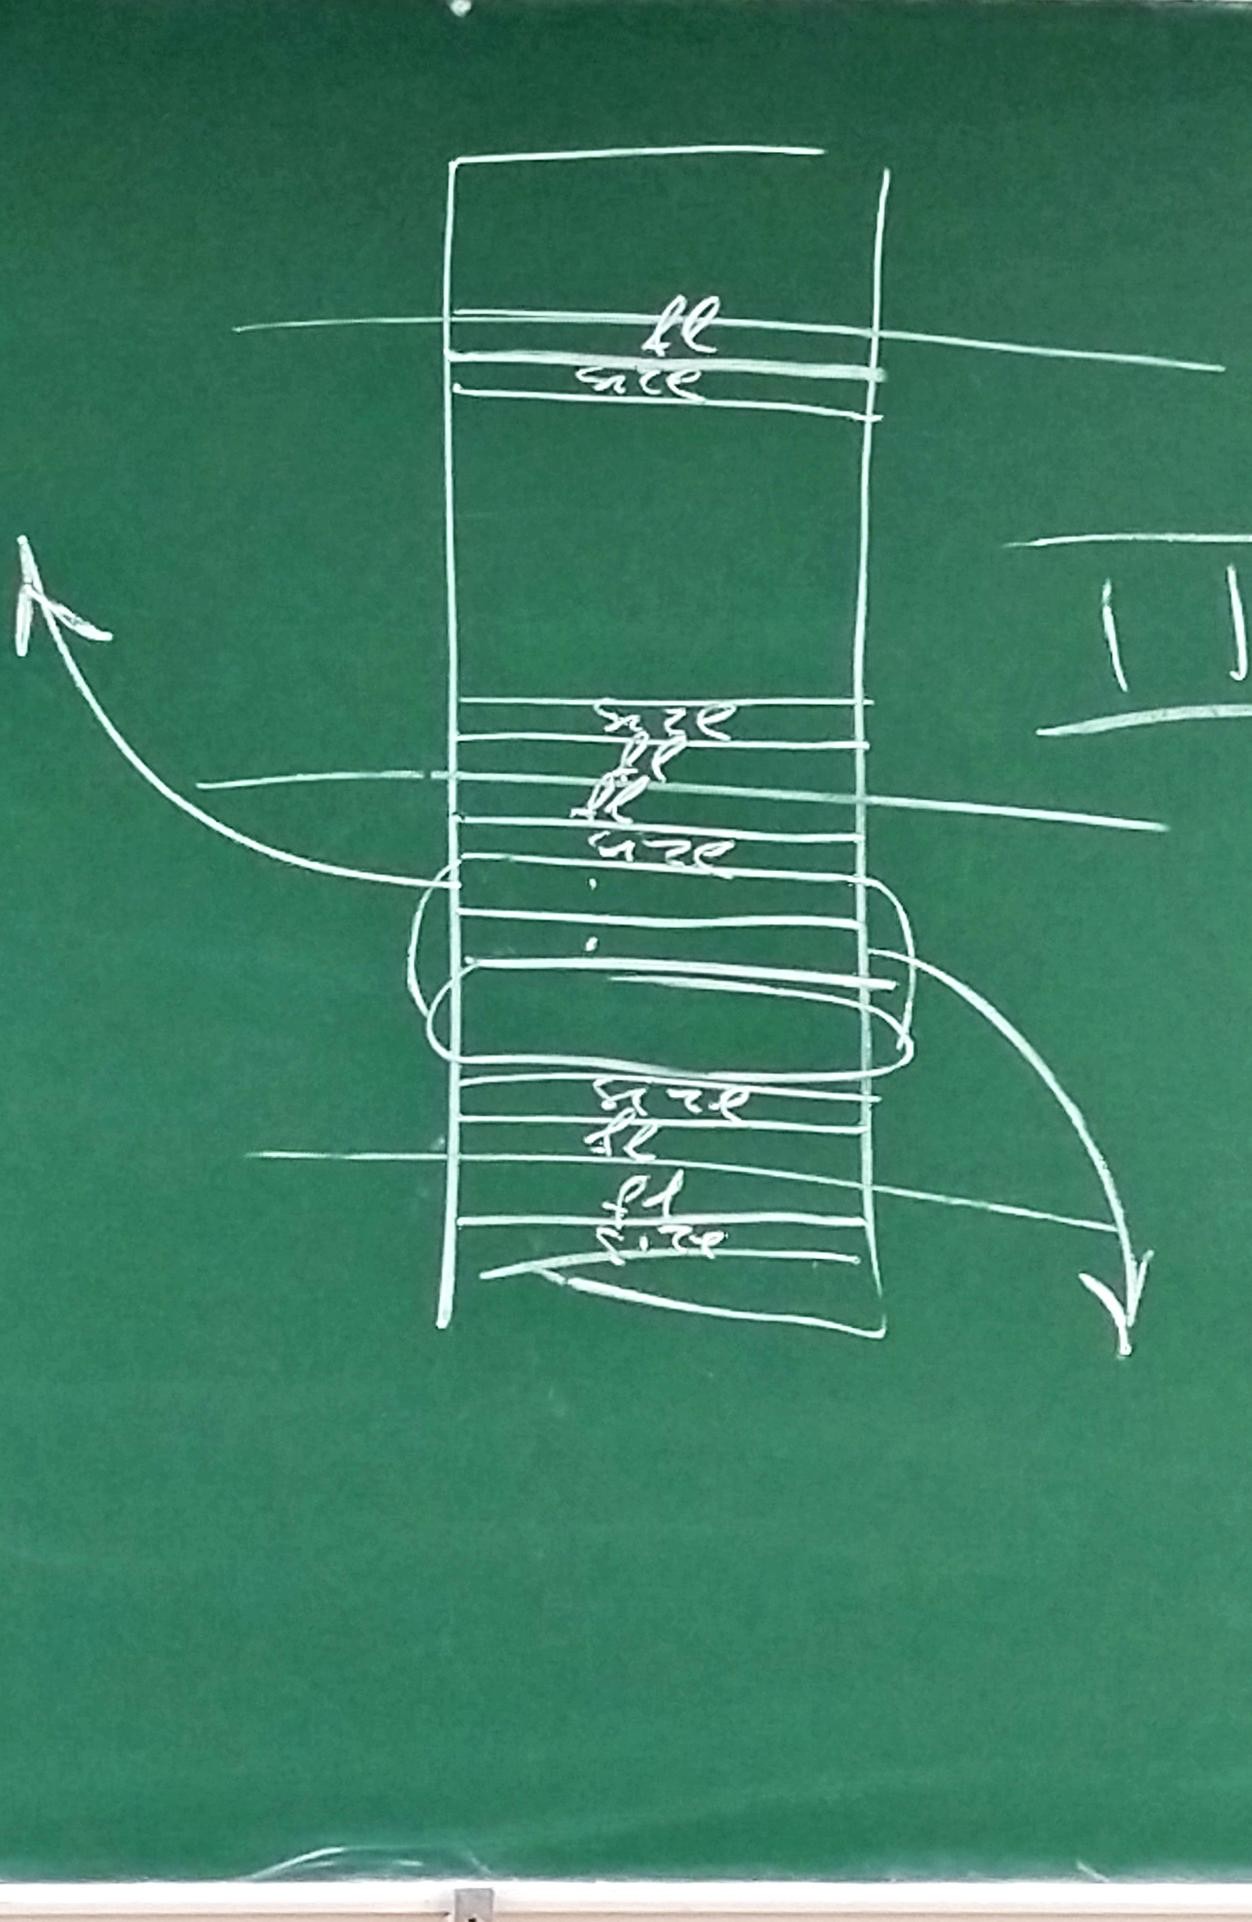 fl
size
size
fl
fl
size
size
fl
fl
size